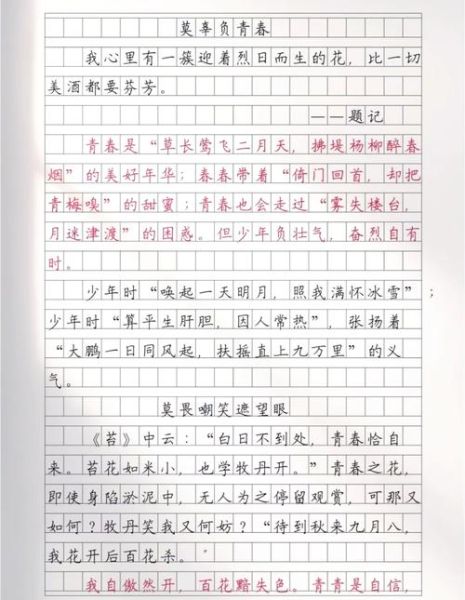 莫辜负青春
我心里有一簇迎着烈日而生的花，比一切
美酒都要芬芳。
——题记
青春是“草长莺飞二月天，拂堤杨柳醉春
烟”的美好年华；春春带着“倚门回首，却把
青梅嗅”的甜蜜；青春也会走过“雾失楼台，
月迷津渡”的困惑。但少年负壮气，奋烈自有
时。
少年时“唤起一天明月，照我满怀冰雪”；
少年时“算平生肝胆，因人常热”，张扬着
“大鹏一日同风起，扶摇直上九万里”的义
气。
莫畏嘲笑遮望眼
《苔》中云：“白日不到处，青春恰自
来。苔花如米小，也学牡丹开。”青春之花，
即使身陷淤泥中，无人为之停留观赏，可那又
如何？牡丹笑我又何妨？“待到秋来九月八，
我花开后百花杀。
我自傲然开，百花黯失色。青青是自信，